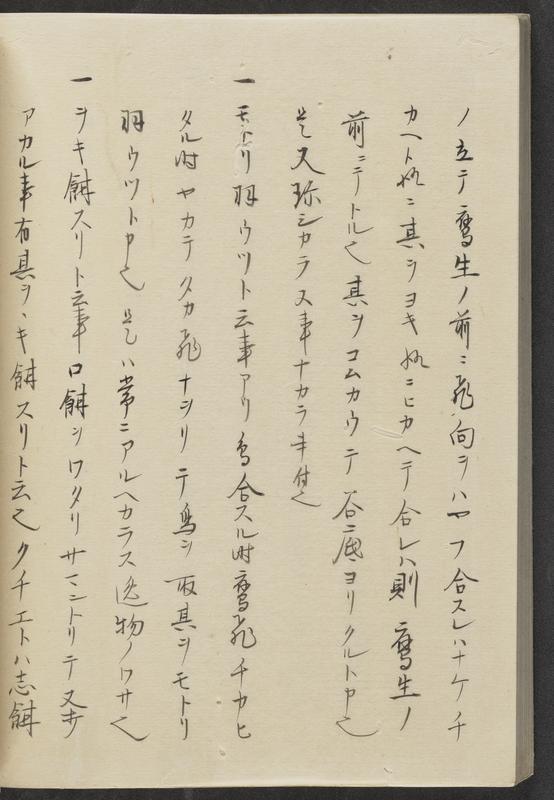 ノ立テ鷹生ノ前ニ飛向ヲハヤフ合スレハナケチ
カヘト処ニ其ヲヨキ処ニヒカヘテ合レハ則鷹生ノ
前ニテトル也其ヲコムカウテ谷底ヨリクルト申也
是又珍シカラヌ事ナカラ書付也
一 モトリ羽ウツト云事アリ鳥合スル時鷹飛チカヒ
タル時ヤカテタカ飛ナヲリテ鳥ヲ取其ヲモトリ
羽ウツト申也是ハ常ニアルヘカラス逸物ノワサ也
一 ヲキ餌スリト云事口餌シワタリサマシトリテ又
アカル事有其ヲヽキ餌スリト云也クチエトハ志餌